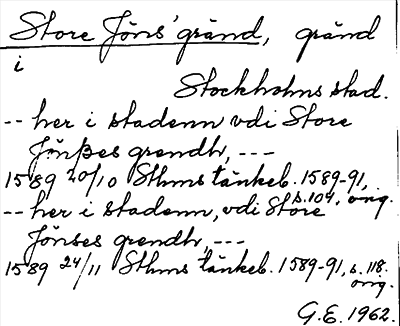 Store Jöns' gränd, gränd
i
Stockholms stad.
-- her i stadenn vdi Store
Jönßes grendh, ---
1589 20/10 Sthms tänkeb. 1589-91,
s. 104, orig.
-- her i stadenn, vdi Store
Jönses grendh, ---
1589 24/11 Sthms tänkeb. 1589-91, s. 118.
orig.
G.E. 1962.